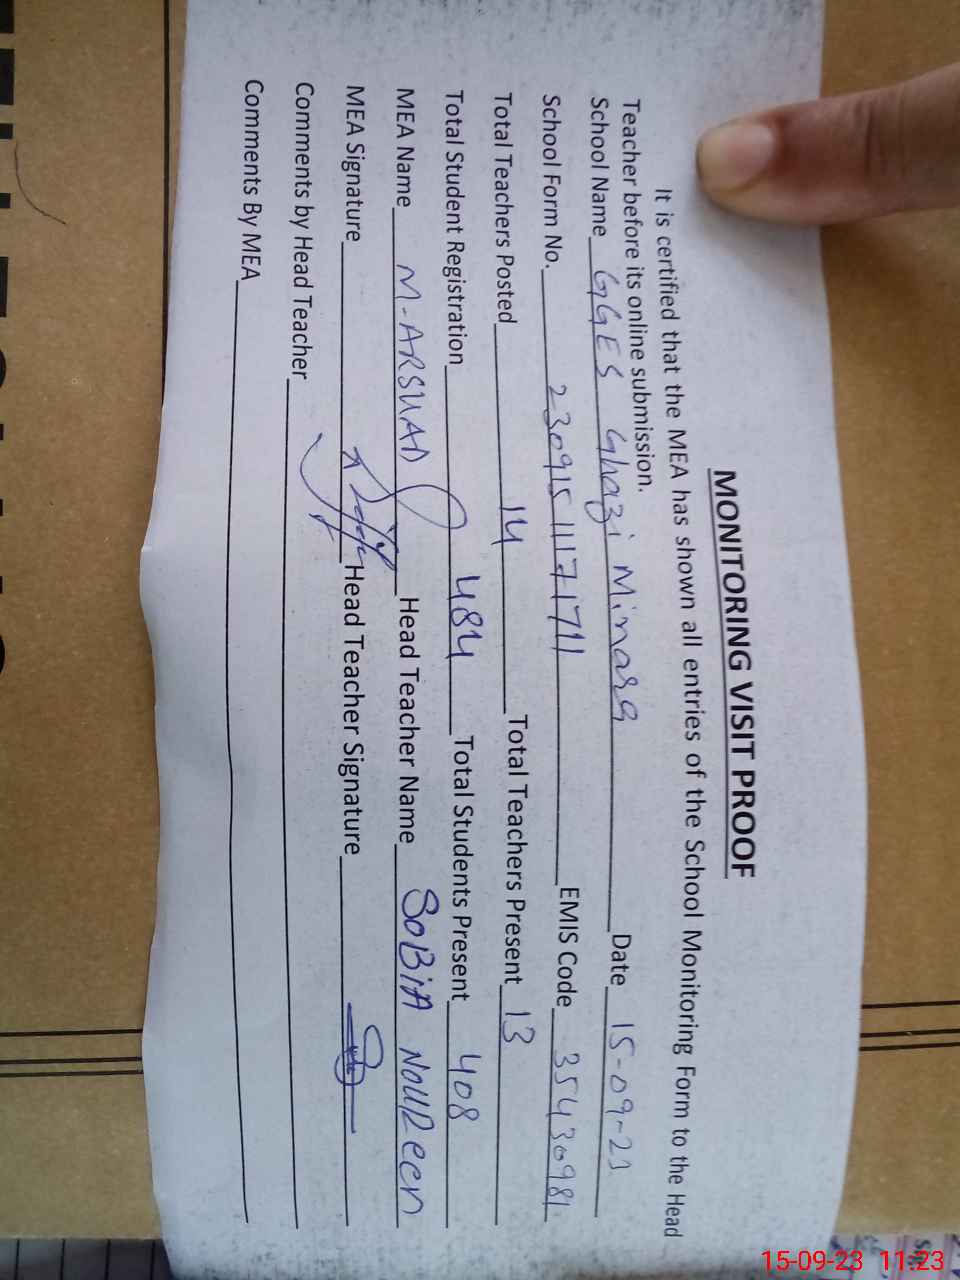 MONITORING VISIT PROOF
It is certified that the MEA has shown all entries of the School Monitoring Form to the Head
Teacher before its online submission.
School Name GGES Ghazi Minara Date 15-09-23
School Form No. 23091511171711 EMIS Code 35430981
Total Teachers Posted 14 Total Teachers Present 13
Total Student Registration 484 Total Students Present 408
MEA Name M-ARSHAD Head Teacher Name SOBIA NOUREEN
MEA Signature Head Teacher Signature
Comments by Head Teacher
Comments By MEA
15-09-23 11:23